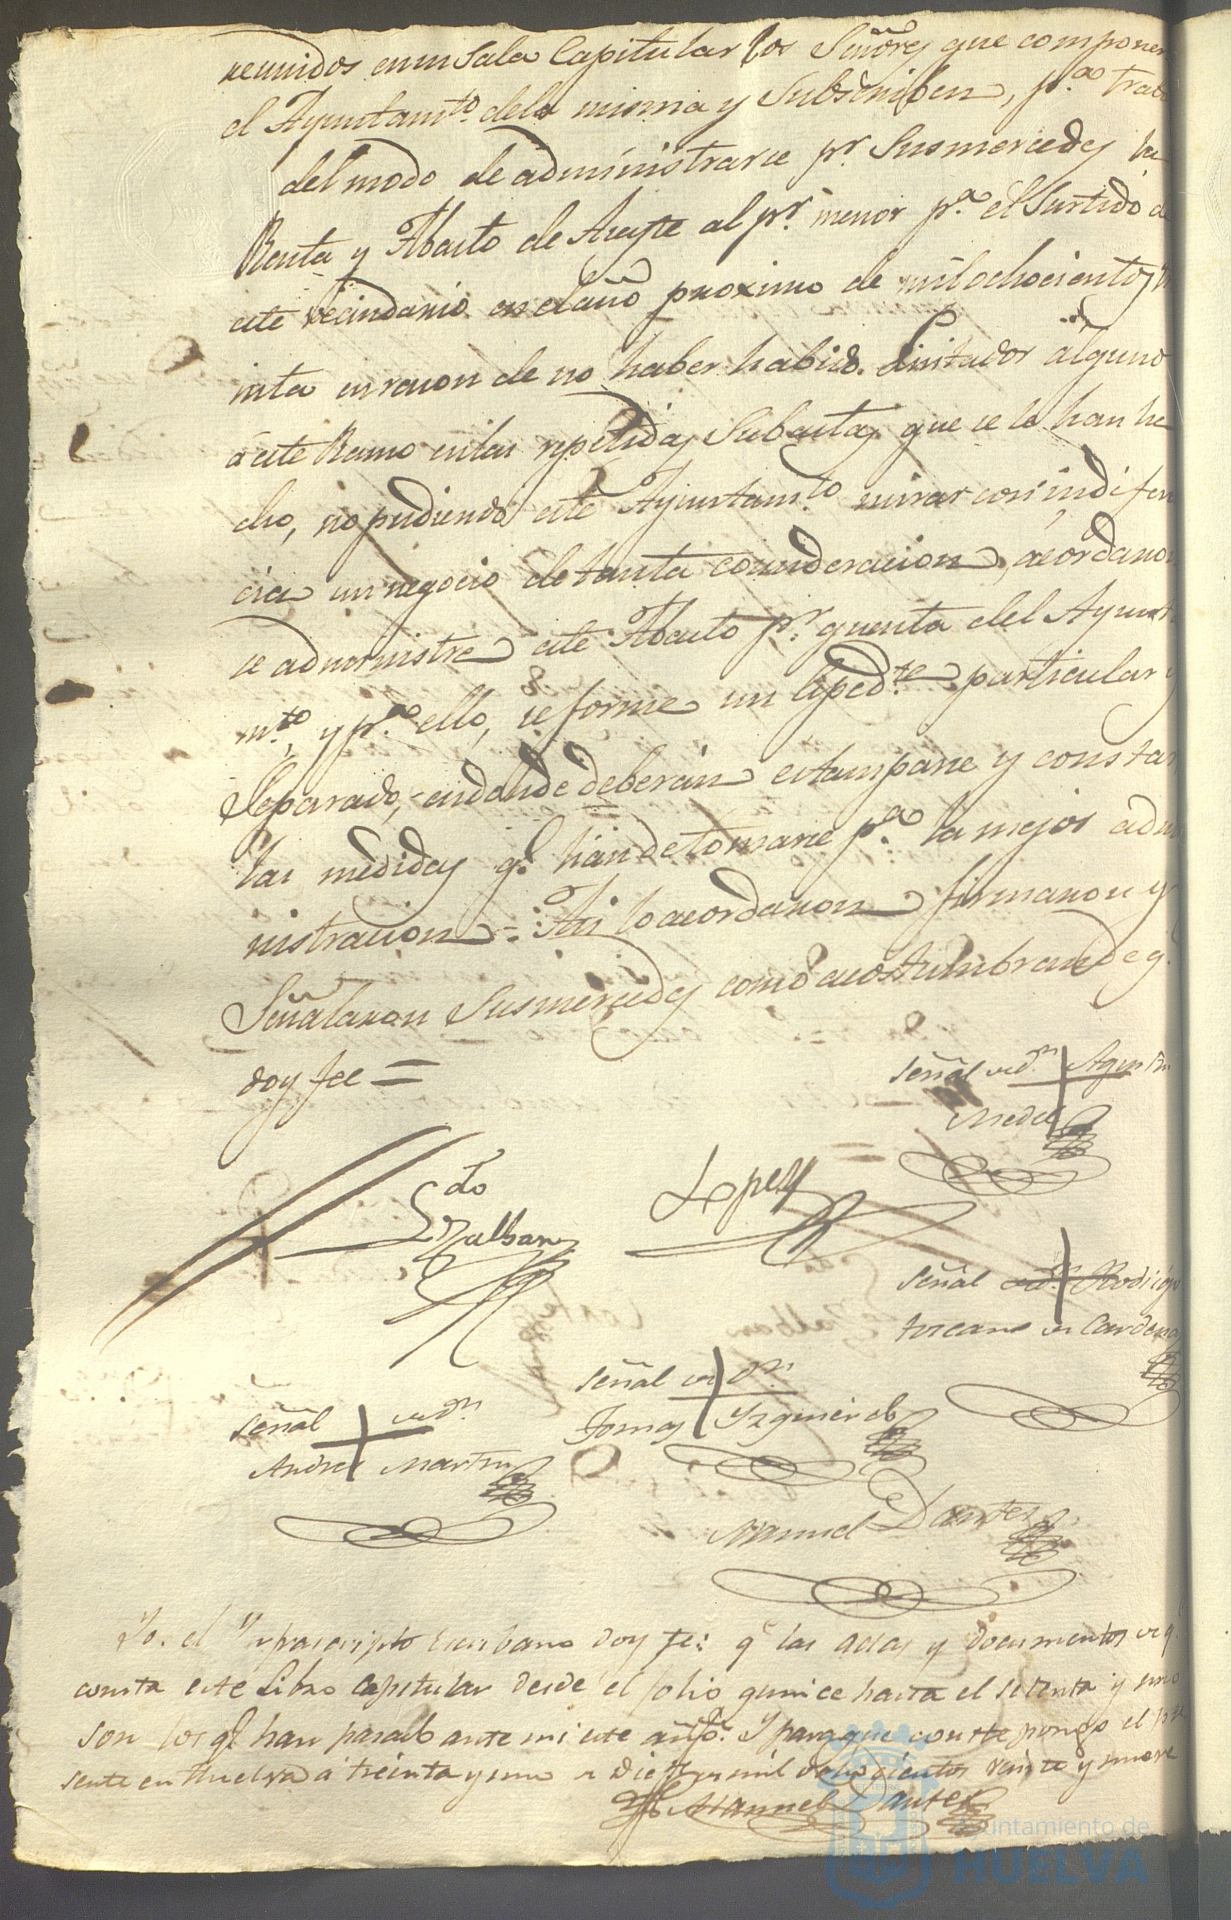 reunidos en su Sala Capitular los Señores que componen
el Ayuntam.to dela misma y Subscriben, p.a trata
del modo de administrarse p.r Susmercedes la
Renta y Abasto de Aceyte al p.r menor p.a el Surtido de
este vecindario en el año proximo de mil ochocientos
inta en razon de no haber habido Licitador alguno
á este Ramo enlas repetidas Subastas que se le han he
cho, no pudiendo este Ayuntam.to mirar con indifern
cia un negocio de tanta consideracion, acordaron
se administre este Abasto p.r quenta del Ayunt
m.to, y p.a ello, se forme un Exped.te particular y
Separado, en donde deberán estamparse y constar
las medidas q.e han de tomarse p.a la mejor admi
nistracion = Asi lo acordaron firmaron y
Señalaron Susmercedes como acostumbran de q.
doy fee =
señal de D.n Agustin
Medel
Ldo
Zalban
Lopez
señal de D.n Rodrigo
toscano de Cardenas
señal de D.n
Tomas Yzquierdo
señal de D.n
Andres Martin
Manuel Dantes
Yo el Ynfrascripto Escribano doy fe: q.e las actas y documentos de q.
consta este Libro Capitular desde el folio quince hasta el setenta y uno
son los q.e han pasado ante mi este año. Y para que conste pongo el pre
sente en Huelva á treinta y uno de Dic.e de mil ochocientos veinte y nueve
Manuel Dantes
Ayuntamiento de
HUELVA